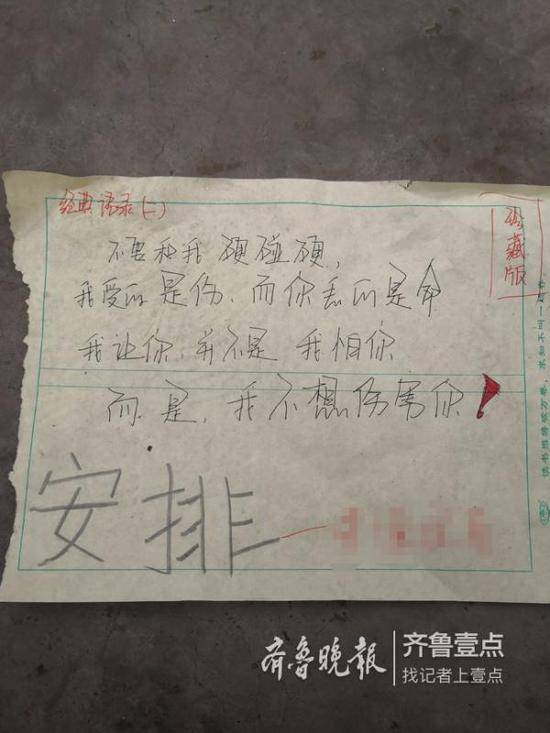 经典语录(二)
珍藏版
不要和我硬碰硬,
我受的是伤,而你丢的是命
我让你,并不是我怕你
而是,我不想伤害你!
安排
齐鲁晚报
齐鲁壹点
找记者上壹点